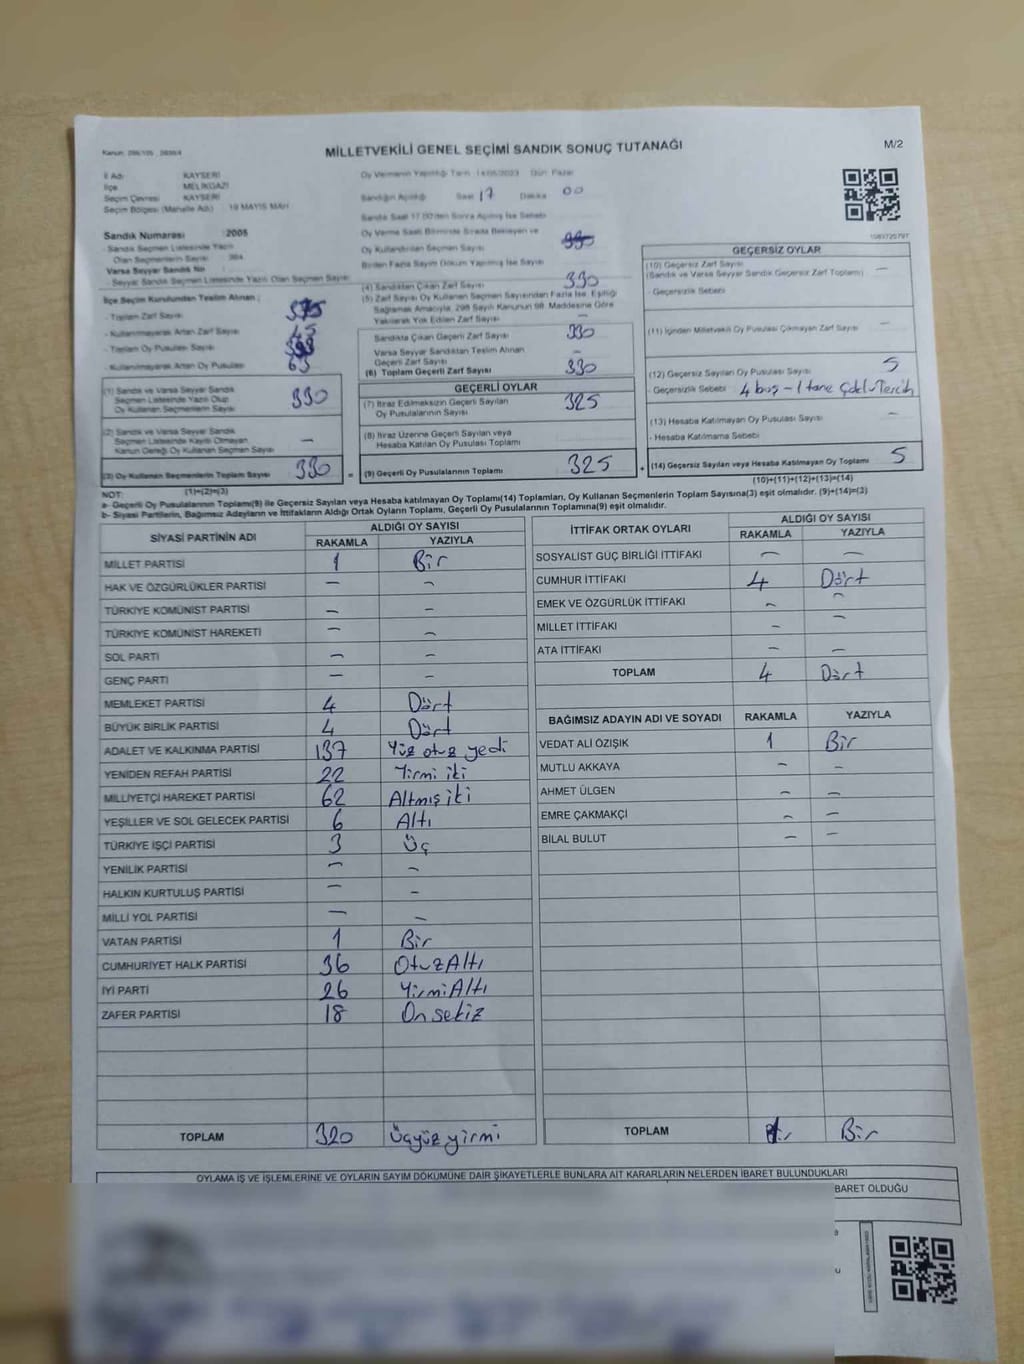 Kanun: 298/105 , 2839/4
MİLLETVEKİLİ GENEL SEÇİMİ SANDIK SONUÇ TUTANAĞI
M/2
İl Adı KAYSERİ
İlçe MELİKGAZİ
Seçim Çevresi KAYSERİ
Seçim Bölgesi (Mahalle Adı) 19 MAYIS MAH
Sandık Numarası :2005
- Sandık Seçmen Listesinde Yazılı
Olan Seçmenlerin Sayısı 364
Varsa Seyyar Sandık No
- Seyyar Sandık Seçmen Listesinde Yazılı Olan Seçmen Sayısı
İlçe Seçim Kurulundan Teslim Alınan ;
- Toplam Zarf Sayısı 375
- Kullanılmayarak Artan Zarf Sayısı 45
- Toplam Oy Pusulası Sayısı
- Kullanılmayarak Artan Oy Pusulası 63
(1) Sandık ve Varsa Seyyar Sandık
Seçmen Listesinde Yazılı Olup
Oy Kullanan Seçmenlerin Sayısı 330
(2) Sandık ve Varsa Seyyar Sandık
Seçmen Listesinde Kayıtlı Olmayan
Kanun Gereği Oy Kullanan Seçmen Sayısı —
(3) Oy Kullanan Seçmenlerin Toplam Sayısı 330 =
(1)+(2)=(3)
Oy Vermenin Yapıldığı Tarih 14/05/2023 Gün: Pazar
Sandığın Açıldığı Saat 17 Dakika 00
Sandık Saat 17.00'den Sonra Açılmış İse Sebebi
Oy Verme Saati Bitiminde Sırada Bekleyen ve
Oy Kullandırılan Seçmen Sayısı
Birden Fazla Sayım Döküm Yapılmış İse Sayısı
(4) Sandıktan Çıkan Zarf Sayısı 330
(5) Zarf Sayısı Oy Kullanan Seçmen Sayısından Fazla İse, Eşitliği
Sağlamak Amacıyla, 298 Sayılı Kanunun 98. Maddesine Göre
Yakılarak Yok Edilen Zarf Sayısı —
Sandıkta Çıkan Geçerli Zarf Sayısı 330
Varsa Seyyar Sandıktan Teslim Alınan
Geçerli Zarf Sayısı —
(6) Toplam Geçerli Zarf Sayısı 330
GEÇERLİ OYLAR
(7) İtiraz Edilmeksizin Geçerli Sayılan
Oy Pusulalarının Sayısı 325
(8) İtiraz Üzerine Geçerli Sayılan veya
Hesaba Katılan Oy Pusulası Toplamı
(9) Geçerli Oy Pusulalarının Toplamı 325 +
1083720797
GEÇERSİZ OYLAR
(10) Geçersiz Zarf Sayısı —
(Sandık ve Varsa Seyyar Sandık Geçersiz Zarf Toplamı)
- Geçersizlik Sebebi
(11) İçinden Milletvekili Oy Pusulası Çıkmayan Zarf Sayısı —
(12) Geçersiz Sayılan Oy Pusulası Sayısı 5
- Geçersizlik Sebebi 4 boş - 1 tane Çoklu Tercih
(13) Hesaba Katılmayan Oy Pusulası Sayısı —
- Hesaba Katılmama Sebebi
(14) Geçersiz Sayılan veya Hesaba Katılmayan Oy Toplamı 5
(10)+(11)+(12)+(13)=(14)
NOT:
a- Geçerli Oy Pusulalarının Toplamı(9) ile Geçersiz Sayılan veya Hesaba katılmayan Oy Toplamı(14) Toplamları, Oy Kullanan Seçmenlerin Toplam Sayısına(3) eşit olmalıdır. (9)+(14)=(3)
b- Siyasi Partilerin, Bağımsız Adayların ve İttifakların Aldığı Ortak Oyların Toplamı, Geçerli Oy Pusulalarının Toplamına(9) eşit olmalıdır.
SİYASİ PARTİNİN ADI ALDIĞI OY SAYISI
RAKAMLA YAZIYLA
MİLLET PARTİSİ 1 Bir
HAK VE ÖZGÜRLÜKLER PARTİSİ — —
TÜRKİYE KOMÜNİST PARTİSİ — —
TÜRKİYE KOMÜNİST HAREKETİ — —
SOL PARTİ — —
GENÇ PARTİ — —
MEMLEKET PARTİSİ 4 Dört
BÜYÜK BİRLİK PARTİSİ 4 Dört
ADALET VE KALKINMA PARTİSİ 137 Yüz otuz yedi
YENİDEN REFAH PARTİSİ 22 Yirmi iki
MİLLİYETÇİ HAREKET PARTİSİ 62 Altmış iki
YEŞİLLER VE SOL GELECEK PARTİSİ 6 Altı
TÜRKİYE İŞÇİ PARTİSİ 3 Üç
YENİLİK PARTİSİ — —
HALKIN KURTULUŞ PARTİSİ — —
MİLLİ YOL PARTİSİ — —
VATAN PARTİSİ 1 Bir
CUMHURİYET HALK PARTİSİ 36 Otuz Altı
İYİ PARTİ 26 Yirmi Altı
ZAFER PARTİSİ 18 On sekiz
TOPLAM 320 Üçyüz yirmi
İTTİFAK ORTAK OYLARI ALDIĞI OY SAYISI
RAKAMLA YAZIYLA
SOSYALİST GÜÇ BİRLİĞİ İTTİFAKI — —
CUMHUR İTTİFAKI 4 Dört
EMEK VE ÖZGÜRLÜK İTTİFAKI — —
MİLLET İTTİFAKI — —
ATA İTTİFAKI — —
TOPLAM 4 Dört
BAĞIMSIZ ADAYIN ADI VE SOYADI RAKAMLA YAZIYLA
VEDAT ALİ ÖZIŞIK 1 Bir
MUTLU AKKAYA — —
AHMET ÜLGEN — —
EMRE ÇAKMAKÇI — —
BİLAL BULUT — —
TOPLAM Bir
OYLAMA İŞ VE İŞLEMLERİNE VE OYLARIN SAYIM DÖKÜMÜNE DAİR ŞİKAYETLERLE BUNLARA AİT KARARLARIN NELERDEN İBARET BULUNDUKLARI
BARET OLDUĞU